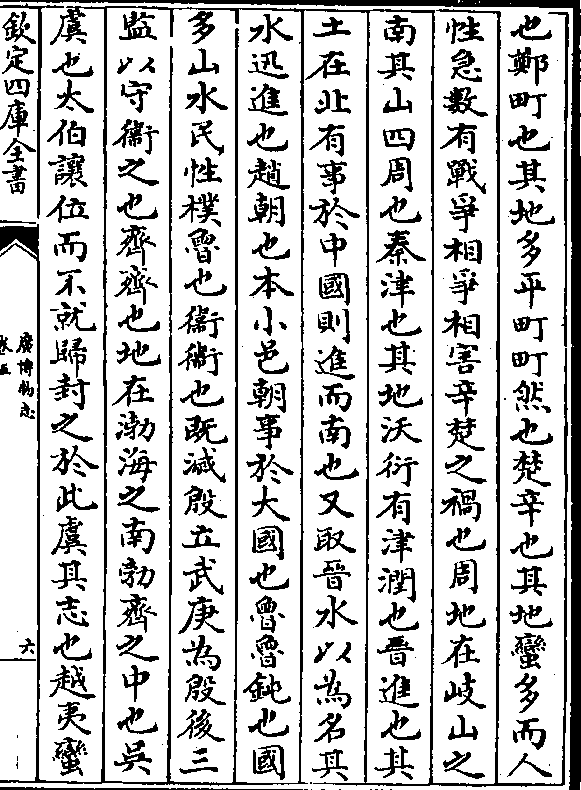 也鄭町也其地多平町町然也楚辛也其地蠻多而人
性急數有戰爭相爭相害辛楚之禍也周地在岐山之
南其山四周也秦津也其地沃衍有津潤也晉進也其
土在北有事於中國則進而南也又取晉水以為名其
水迅進也趙朝也本小邑朝事於大國也魯魯鈍也國
多山水民性樸魯也衞衞也既滅殷立武庚為殷後三
監以守衞之也齊齊也地在渤海之南勃齊之中也吳
虞也太伯讓位而不就歸封之於此虞其志也越夷蠻
欽定四庫全書
廣博物志
卷五
六